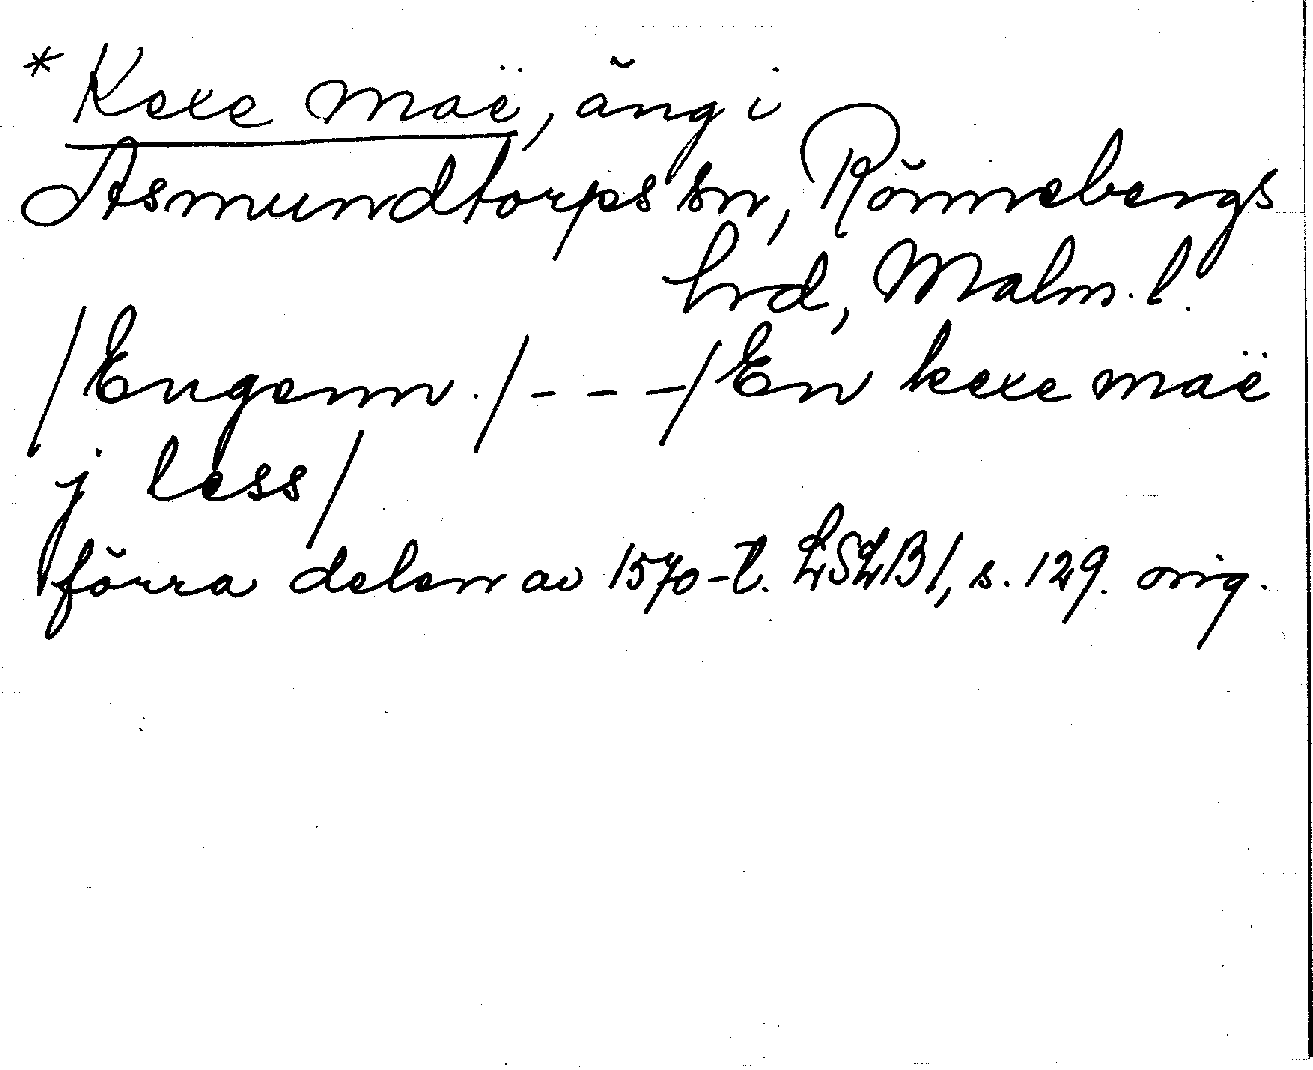 * Kexe maë, äng i
Asmundtorps sn, Rönnebergs
hrd, Malm. l.
/Engenn./ - - - /En kexe maë
j less/
förra delen av 1570-t. LSLB1, s. 129. orig.